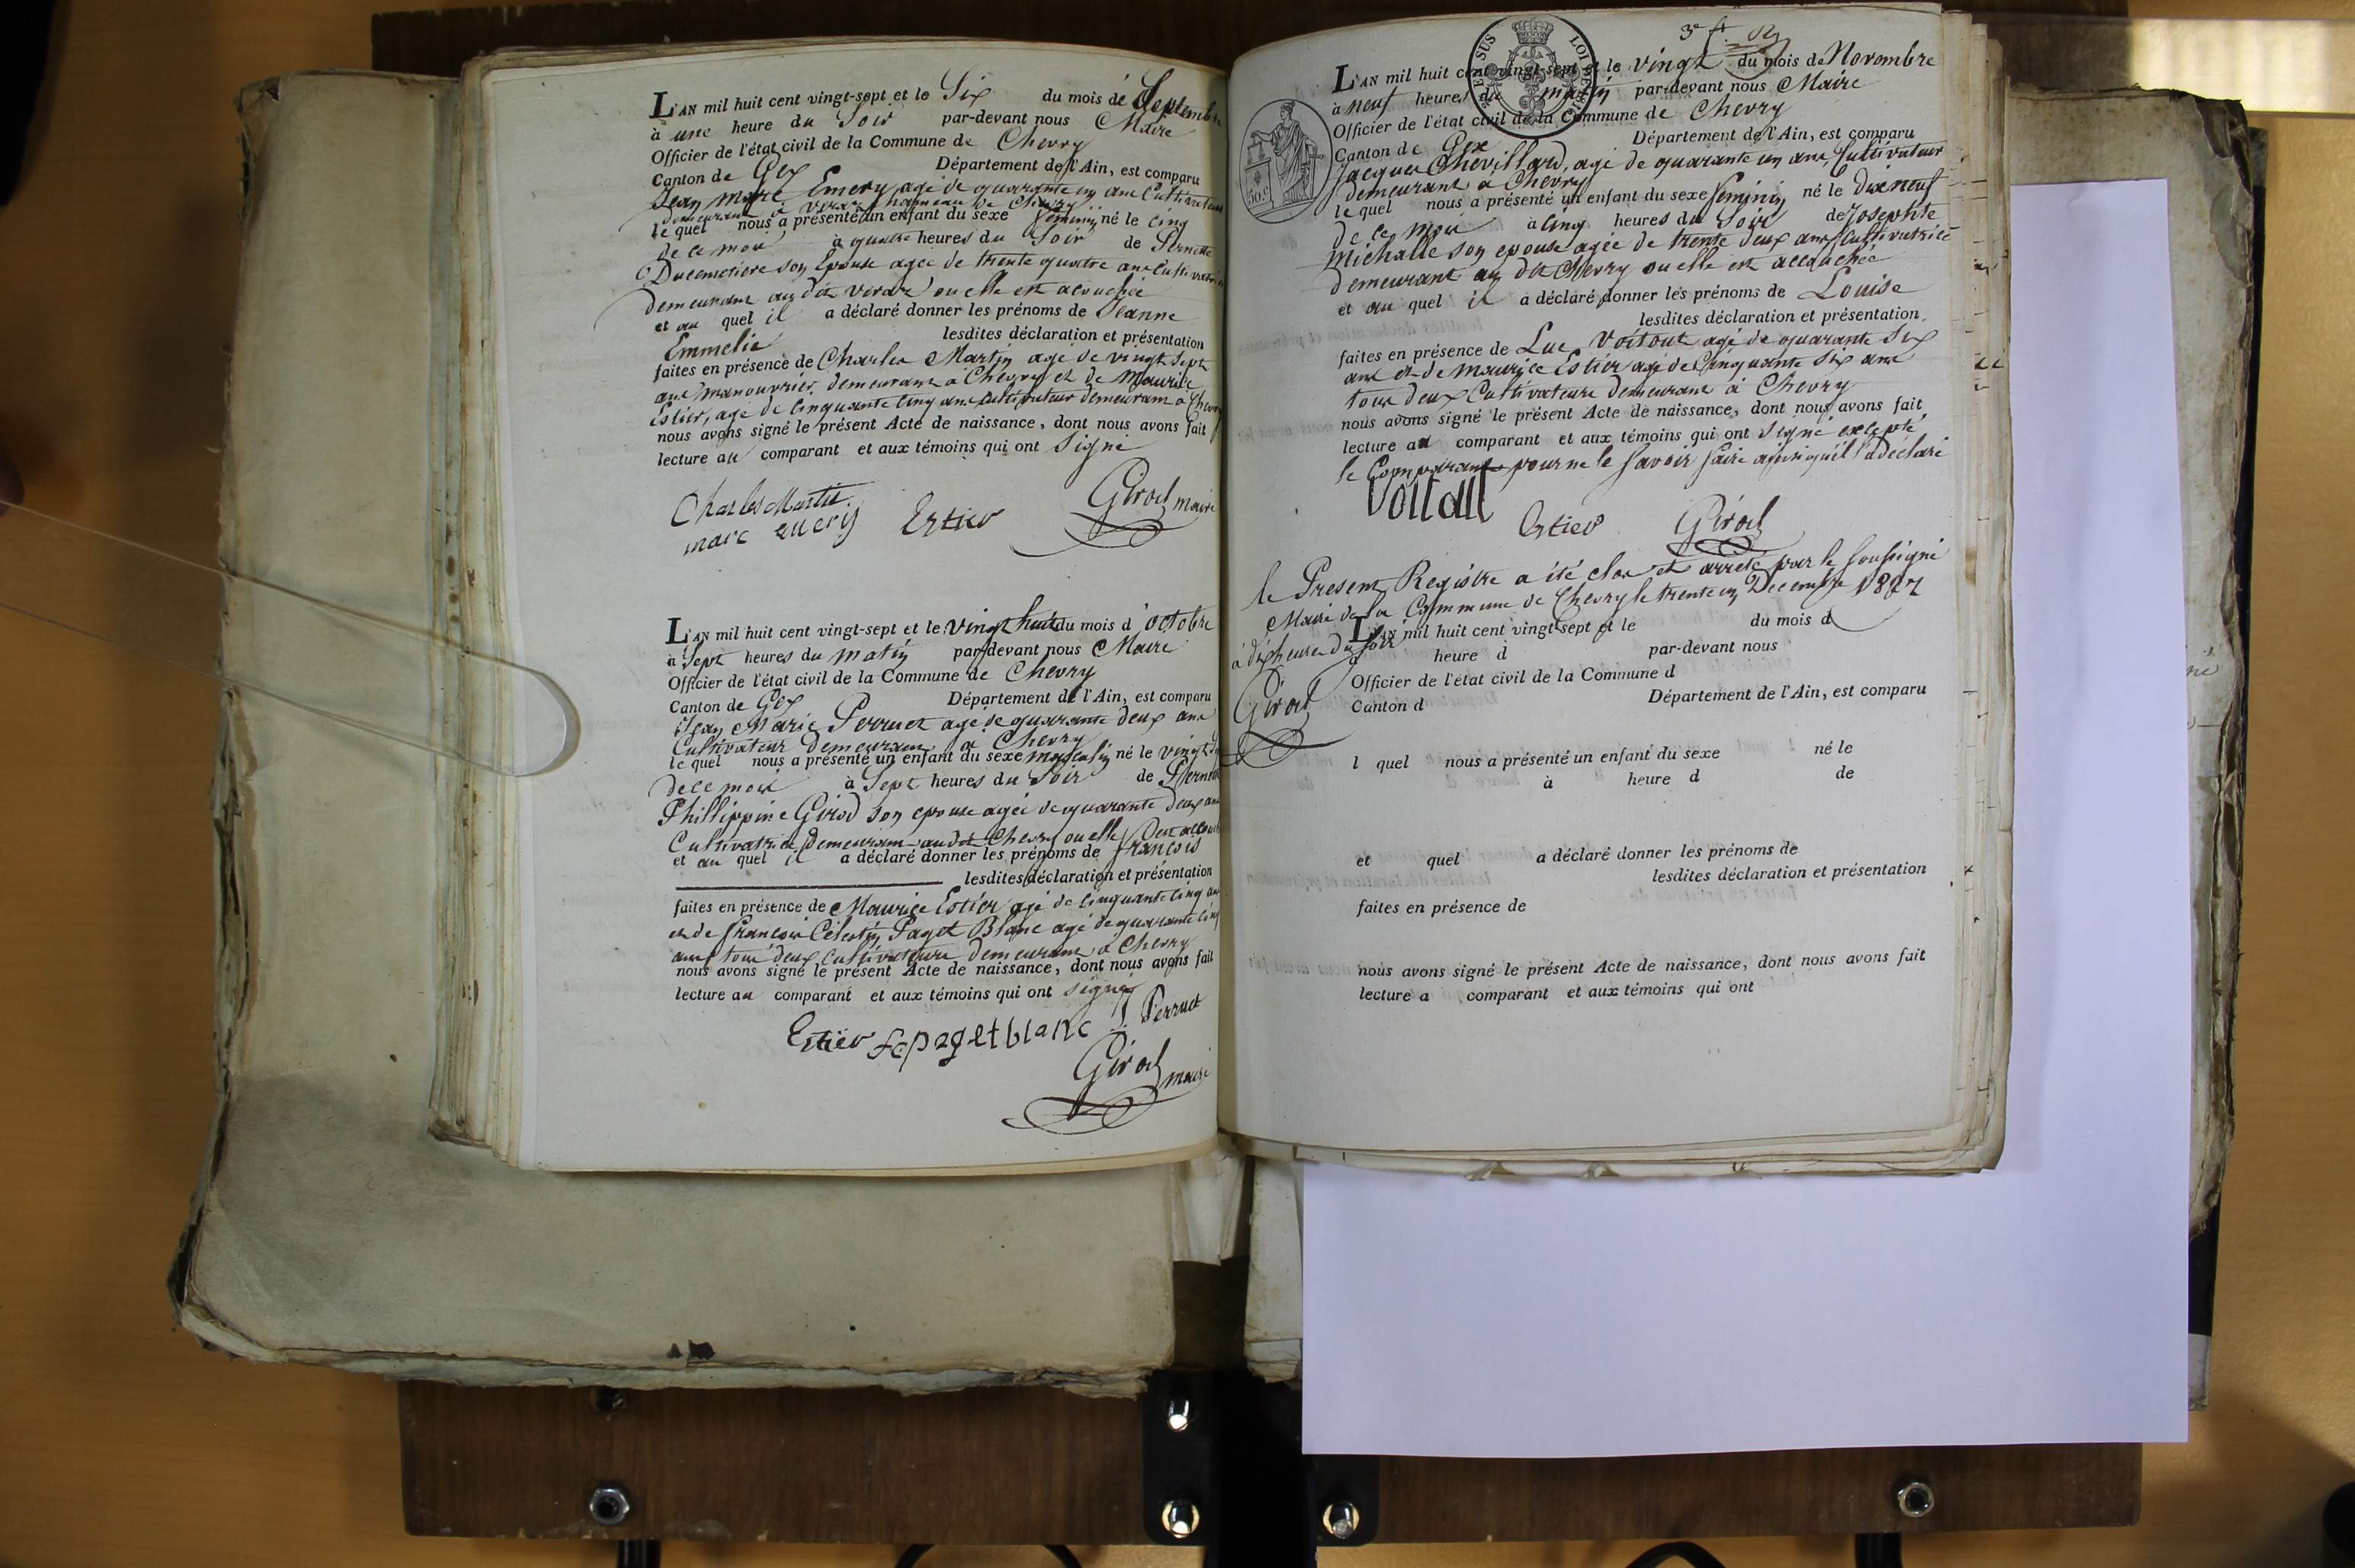 L'AN mil huit cent vingt-sept et le Six du mois de Septembre
à une heure du Soir par-devant nous Maire
Officier de l'état civil de la Commune de Chevry
Canton de Gex Département de l'Ain, est comparu
Jean marc Emery agé de quarante un ans Cultivateur
demeurant a veraz hameau de Chevry
le quel nous a présenté un enfant du sexe feminin né le cinq
de ce mois à quatre heures du Soir de Pernette
Ducimetiere son Epouse agée de trente quatre ans Cultivatrice
demeurant au dit veraz ou elle est acouchée
et au quel il a déclaré donner les prénoms de Jeanne
Emmelie lesdites déclaration et présentation
faites en présence de Charles Martin agé de vingt sept
ans manouvrier demeurant a Chevry et de Maurice
Estier, agé de cinquante cinq ans Cultivateur demeurant a Chevry
nous avons signé le présent Acte de naissance, dont nous avons fait
lecture au comparant et aux témoins qui ont Signé
Charles Martin
marc emery Estier Girod maire
L'AN mil huit cent vingt-sept et le vingt huit du mois d'octobre
à Sept heures du matin par-devant nous Maire
Officier de l'état civil de la Commune de Chevry
Canton de Gex Département de l'Ain, est comparu
Jean Marie Perruet agé de quarante deux ans
Cultivateur demeurant a Chevry
le quel nous a présenté un enfant du sexe masculin né le vingt
de ce mois à Sept heures du Soir de Pernette
Phillippine Girod son epouse agée de quarante deux ans
Cultivatrice, demeurant au dit Chevry ou elle est accouchée
et au quel il a déclaré donner les prénoms de françois
lesdites déclaration et présentation
faites en présence de Maurice Estier agé de cinquante cinq ans
et de françois Célestin Paget Blanc agé de quarante cinq
ans tous deux Cultivateurs demeurant a Chevry
nous avons signé le présent Acte de naissance, dont nous avons fait
lecture au comparant et aux témoins qui ont signé
Estier fc paget blanc J. Perruet
Girod maire
3e ft
L'AN mil huit cent vingt-sept et le vingt du mois de Novembre
à neuf heures du matin par-devant nous Maire
Officier de l'état civil de la Commune de Chevry
Canton de Gex Département de l'Ain, est comparu
Jacques Chevillard, agé de quarante un ans, Cultivateur
demeurant a Chevry
le quel nous a présenté un enfant du sexe feminin né le dix neuf
de ce mois à cinq heures du Soir de Josephte
michalle son epouse agée de trente deux ans Cultivatrice
demeurant au dit Chevry ou elle est accouchée
et au quel il a déclaré donner les prénoms de Louise
lesdites déclaration et présentation
faites en présence de Luc Voitout agé de quarante six
ans et de maurice Estier agé de Cinquante six ans
tous deux Cultivateurs demeurant à Chevry
nous avons signé le présent Acte de naissance, dont nous avons fait
lecture au comparant et aux témoins qui ont signé excepté
le Comparant pour ne le savoir faire ainsi qu'il l'a déclaré
Voitout
Estier Girod
le Present Registre a été clos et arreté par le soussigné
Maire de la Commune de Chevry le trente un Decembre 1827
à dix heures du soir
Girod
L'AN mil huit cent vingt-sept et le du mois d
à heure d par-devant nous
Officier de l'état civil de la Commune d
Canton d Département de l'Ain, est comparu
l quel nous a présenté un enfant du sexe né le
à heure d de
et quel a déclaré donner les prénoms de
lesdites déclaration et présentation
faites en présence de
nous avons signé le présent Acte de naissance, dont nous avons fait
lecture a comparant et aux témoins qui ont